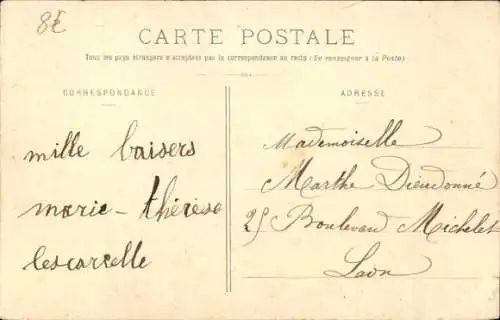 8€
CARTE POSTALE
Tous les pays étrangers n'acceptent pas la correspondance au recto (Se renseigner à la Poste)
CORRESPONDANCE
mille baisers
marie-thérèse
lescarcelle
ADRESSE
Mademoiselle
Marthe Dieudonné
25 Boulevard Michelet
Laon